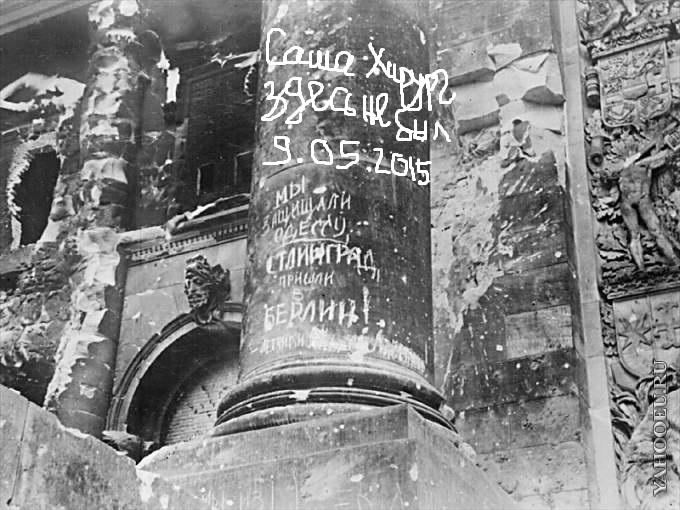 Саша Хирург
здесь не был
9.05.2015
МЫ
ЗАЩИЩАЛИ
ОДЕССУ
СТАЛИНГРАД,
ПРИШЛИ
В
БЕРЛИН!
YAHOOEU.RU